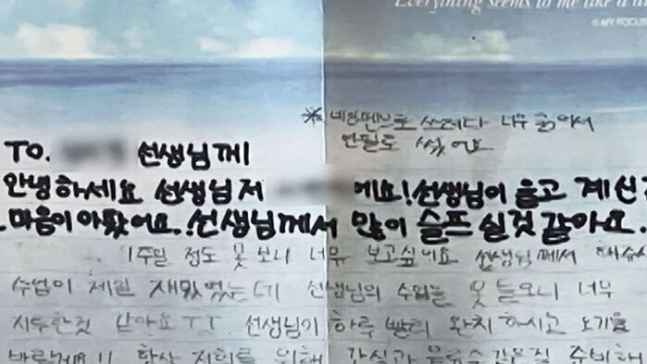 Everything seems to me like a
※ 네임펜으로 쓰려다 너무 굵어서
연필로 썼어요
TO. 선생님께
안녕하세요 선생님 저 에요! 선생님이 울고 계신
마음이 아팠어요. 선생님께서 많이 슬프 실것 같아요.
1주일 정도 못 보니 너무 보고싶어요 선생님께서
수업이 제일 재밌었는데 선생님의 수업을 못 들으니 너무
지루한것 같아요 ㅠㅠ 선생님이 하루 빨리 완치 하시고 오기를
바랄게요!! 항상 저희를 위해 간식과 준비해